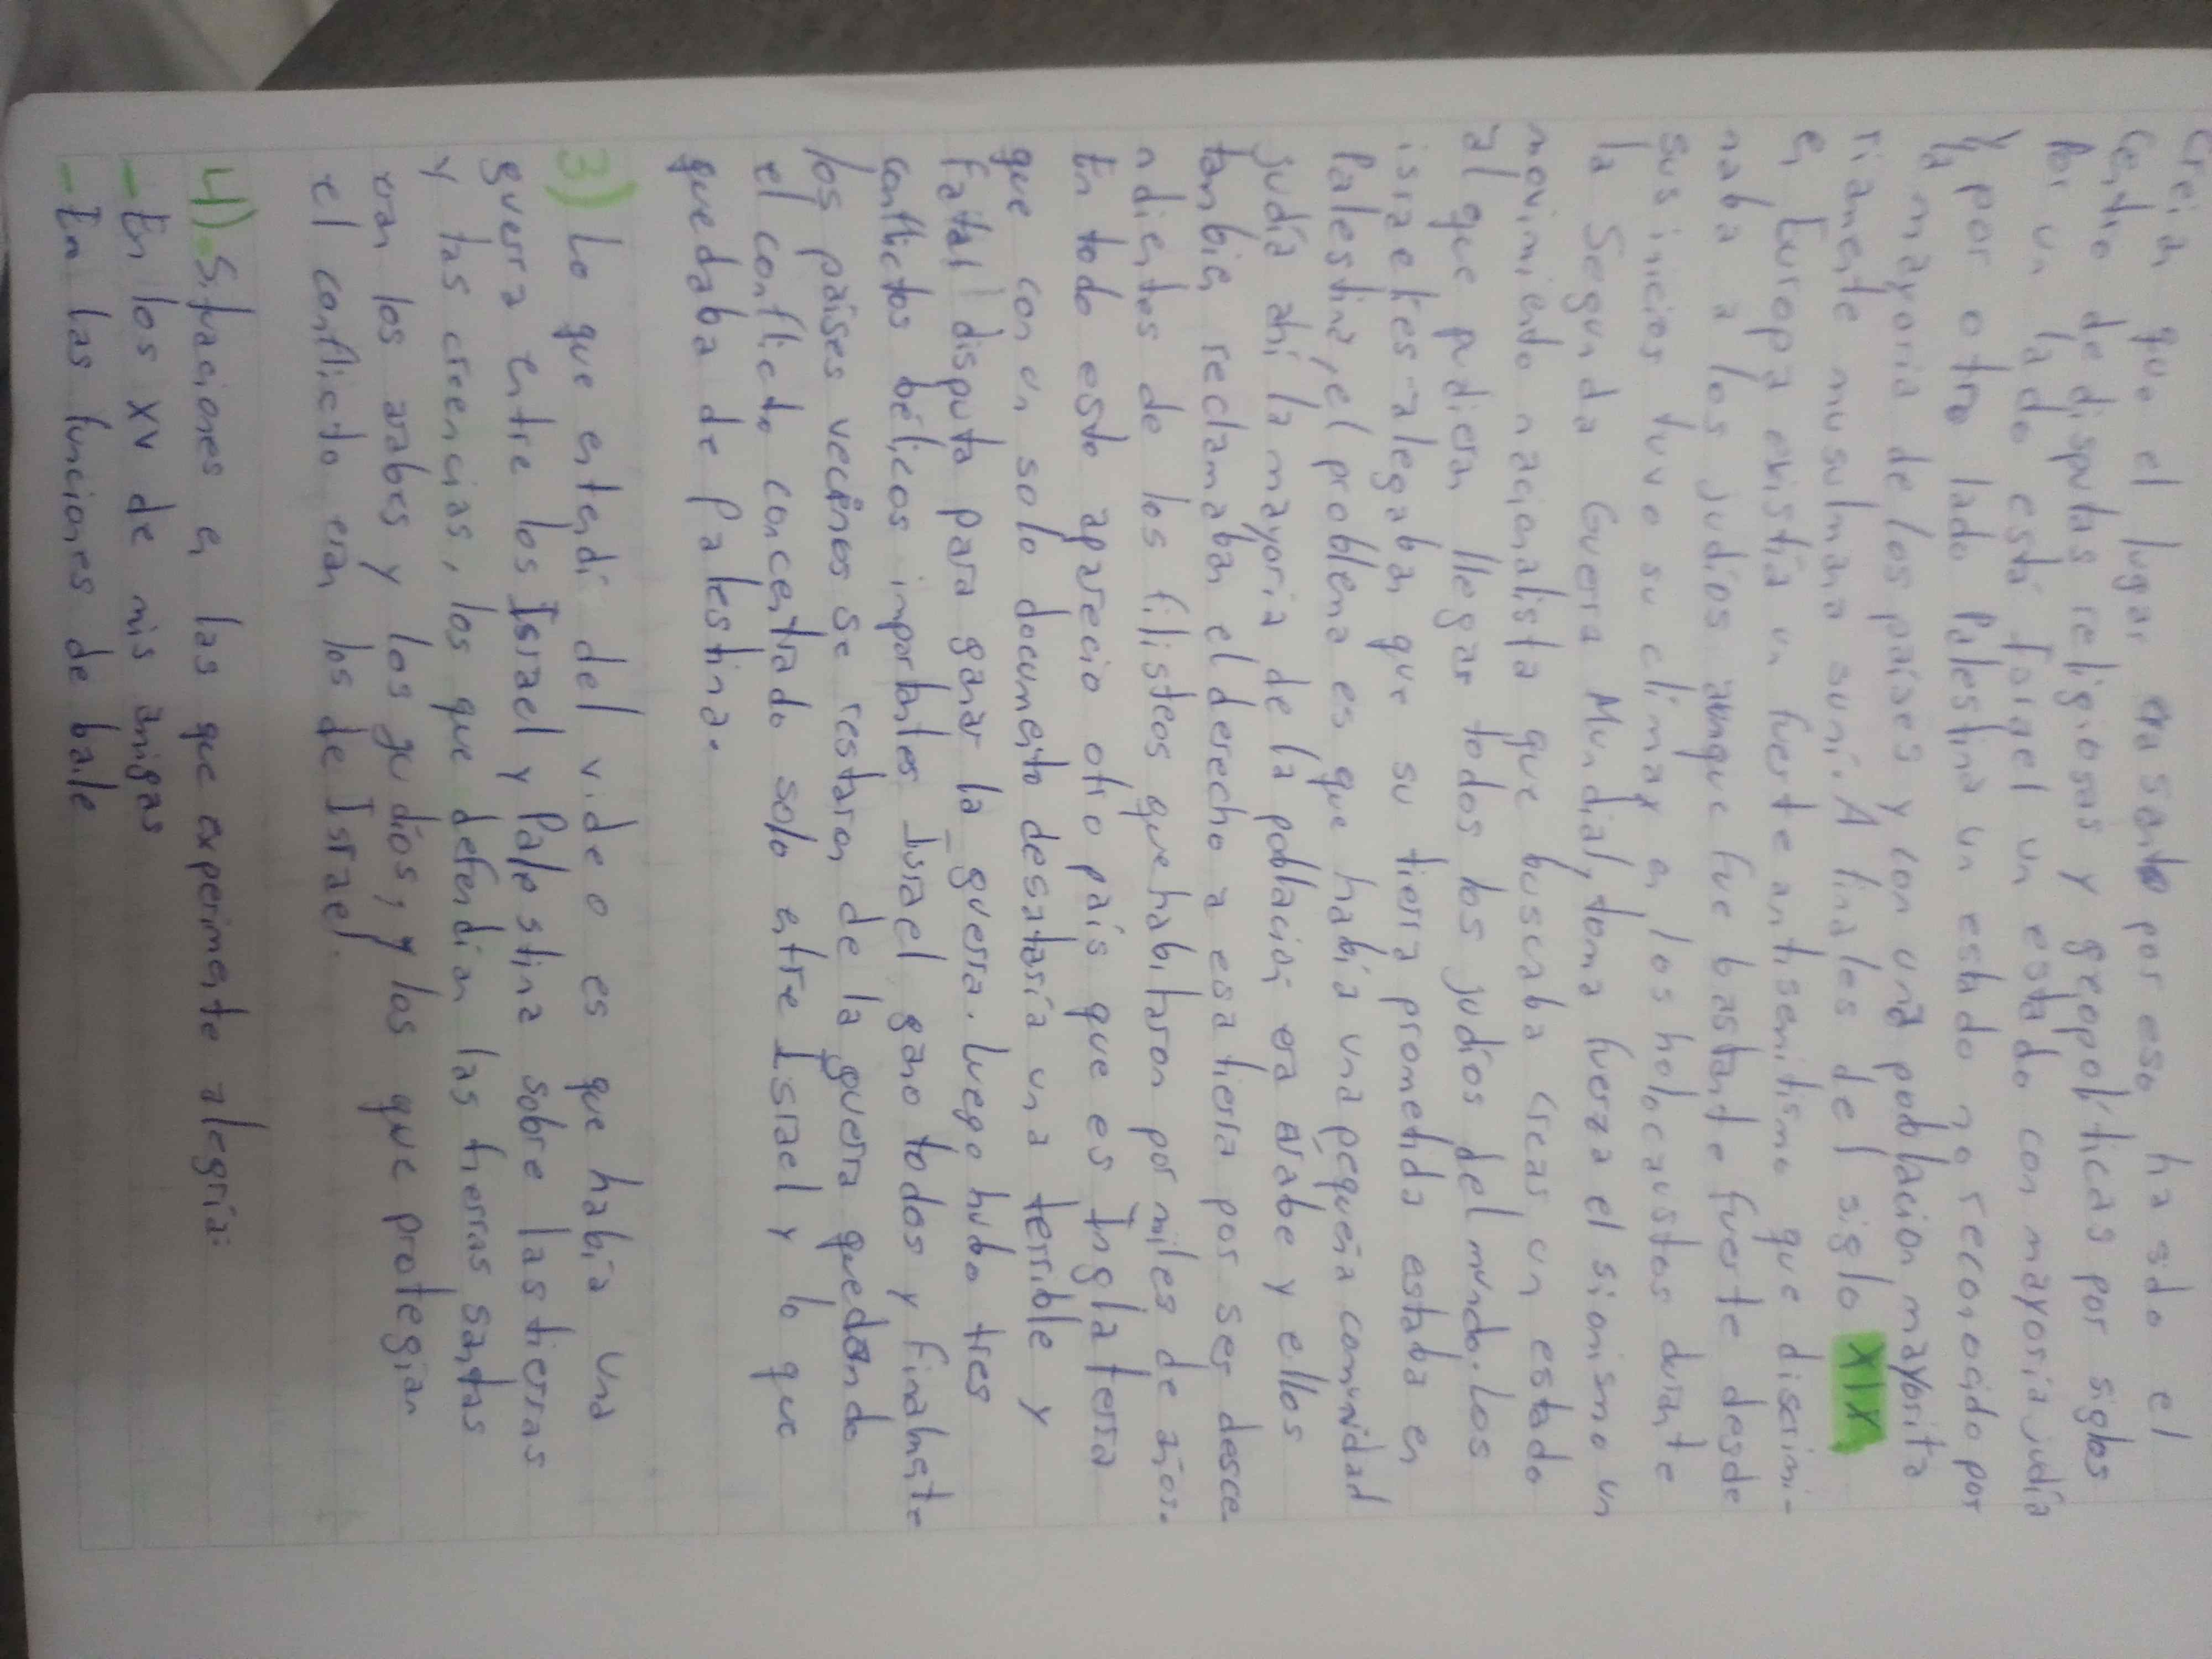 creían que el lugar era santo por eso ha sido el
centro de disputas religiosas y geopolíticas por siglos
Por un lado está Israel un estado con mayoría judía
y por otro lado Palestina un estado no reconocido por
la mayoria de los países y con una poblacion mayorita
riamente musulmana suní. A finales del siglo XIX,
en Europa existía un fuerte antisemitismo que discrimi-
naba a los judíos aunque fue bastante fuerte desde
sus inicios tuvo su climax en los holocaustos durante
la Segunda Guerra Mundial, toma fuerza el sionismo un
movimiento nacionalista que buscaba crear un estado
al que pudieran llegar todos los judíos del mundo. Los
israelíes alegaban que su tierra prometida estaba en
Palestina, el problema es que había una pequeña comunidad
judía ahí la mayoria de la población era arabe y ellos
tambien reclamaban el derecho a esa tierra por ser desce-
ndientes de los filisteos que habitaron por miles de años.
En todo esto aparecio otro país que es Inglaterra
que con un solo documento desataría una terrible y
fatal disputa para ganar la guerra. Luego hubo tres
conflictos bélicos importantes Israel gano todos y finalmente
los países vecinos se restaron de la guerra quedando
el conflicto concentrado solo entre Israel y lo que
quedaba de Palestina.
3) Lo que entendí del video es que había una
guerra entre los Israel y Palestina sobre las tierras
y las creencias, los que defendían las tierras santas
eran los arabes y los gudíos, y los que protegían
el conflicto eran los de Israel.
4). Situaciones en las que experimente alegría:
- En los XV de mis amigas
- En las funciones de baile